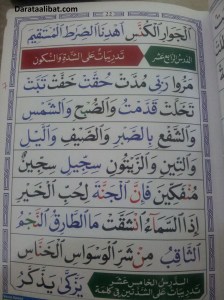 Darataalibat.com
الْجَوَارِ الْكُنَّسِ اِهْدِنَا الصِّرَاطَ الْمُسْتَقِيْمَ
الدرس الرابع عشر
تدريبات على الشدة والسكون
مَرُّوْا رَبِّىْ مُدَّتْ حُقَّتْ خَفَّتْ تَبَّتْ
تَخَلَّتْ قَدَّمْتُ وَالصُّبْحِ وَالشَّمْسِ
وَالشَّفْعِ بِالصَّبْرِ وَالصَّيْفِ وَالَّيْلِ
وَالتِّيْنِ وَالزَّيْتُوْنِ سِجِّيْلٍ سِجِّيْنٌ
مُنْفَكِّيْنَ فَإِنَّ الْجَنَّةَ لِحُبِّ الْخَيْرِ
إِذَا السَّمَآءُ انْشَقَّتْ مَا الطَّارِقُ النَّجْمُ
الثَّاقِبُ مِنْ شَرِّ الْوَسْوَاسِ الْخَنَّاسِ
الدرس الخامس عشر
تدريبات على الشدتين في كلمة
يَزَّكّٰى يَذَّكَّرُ